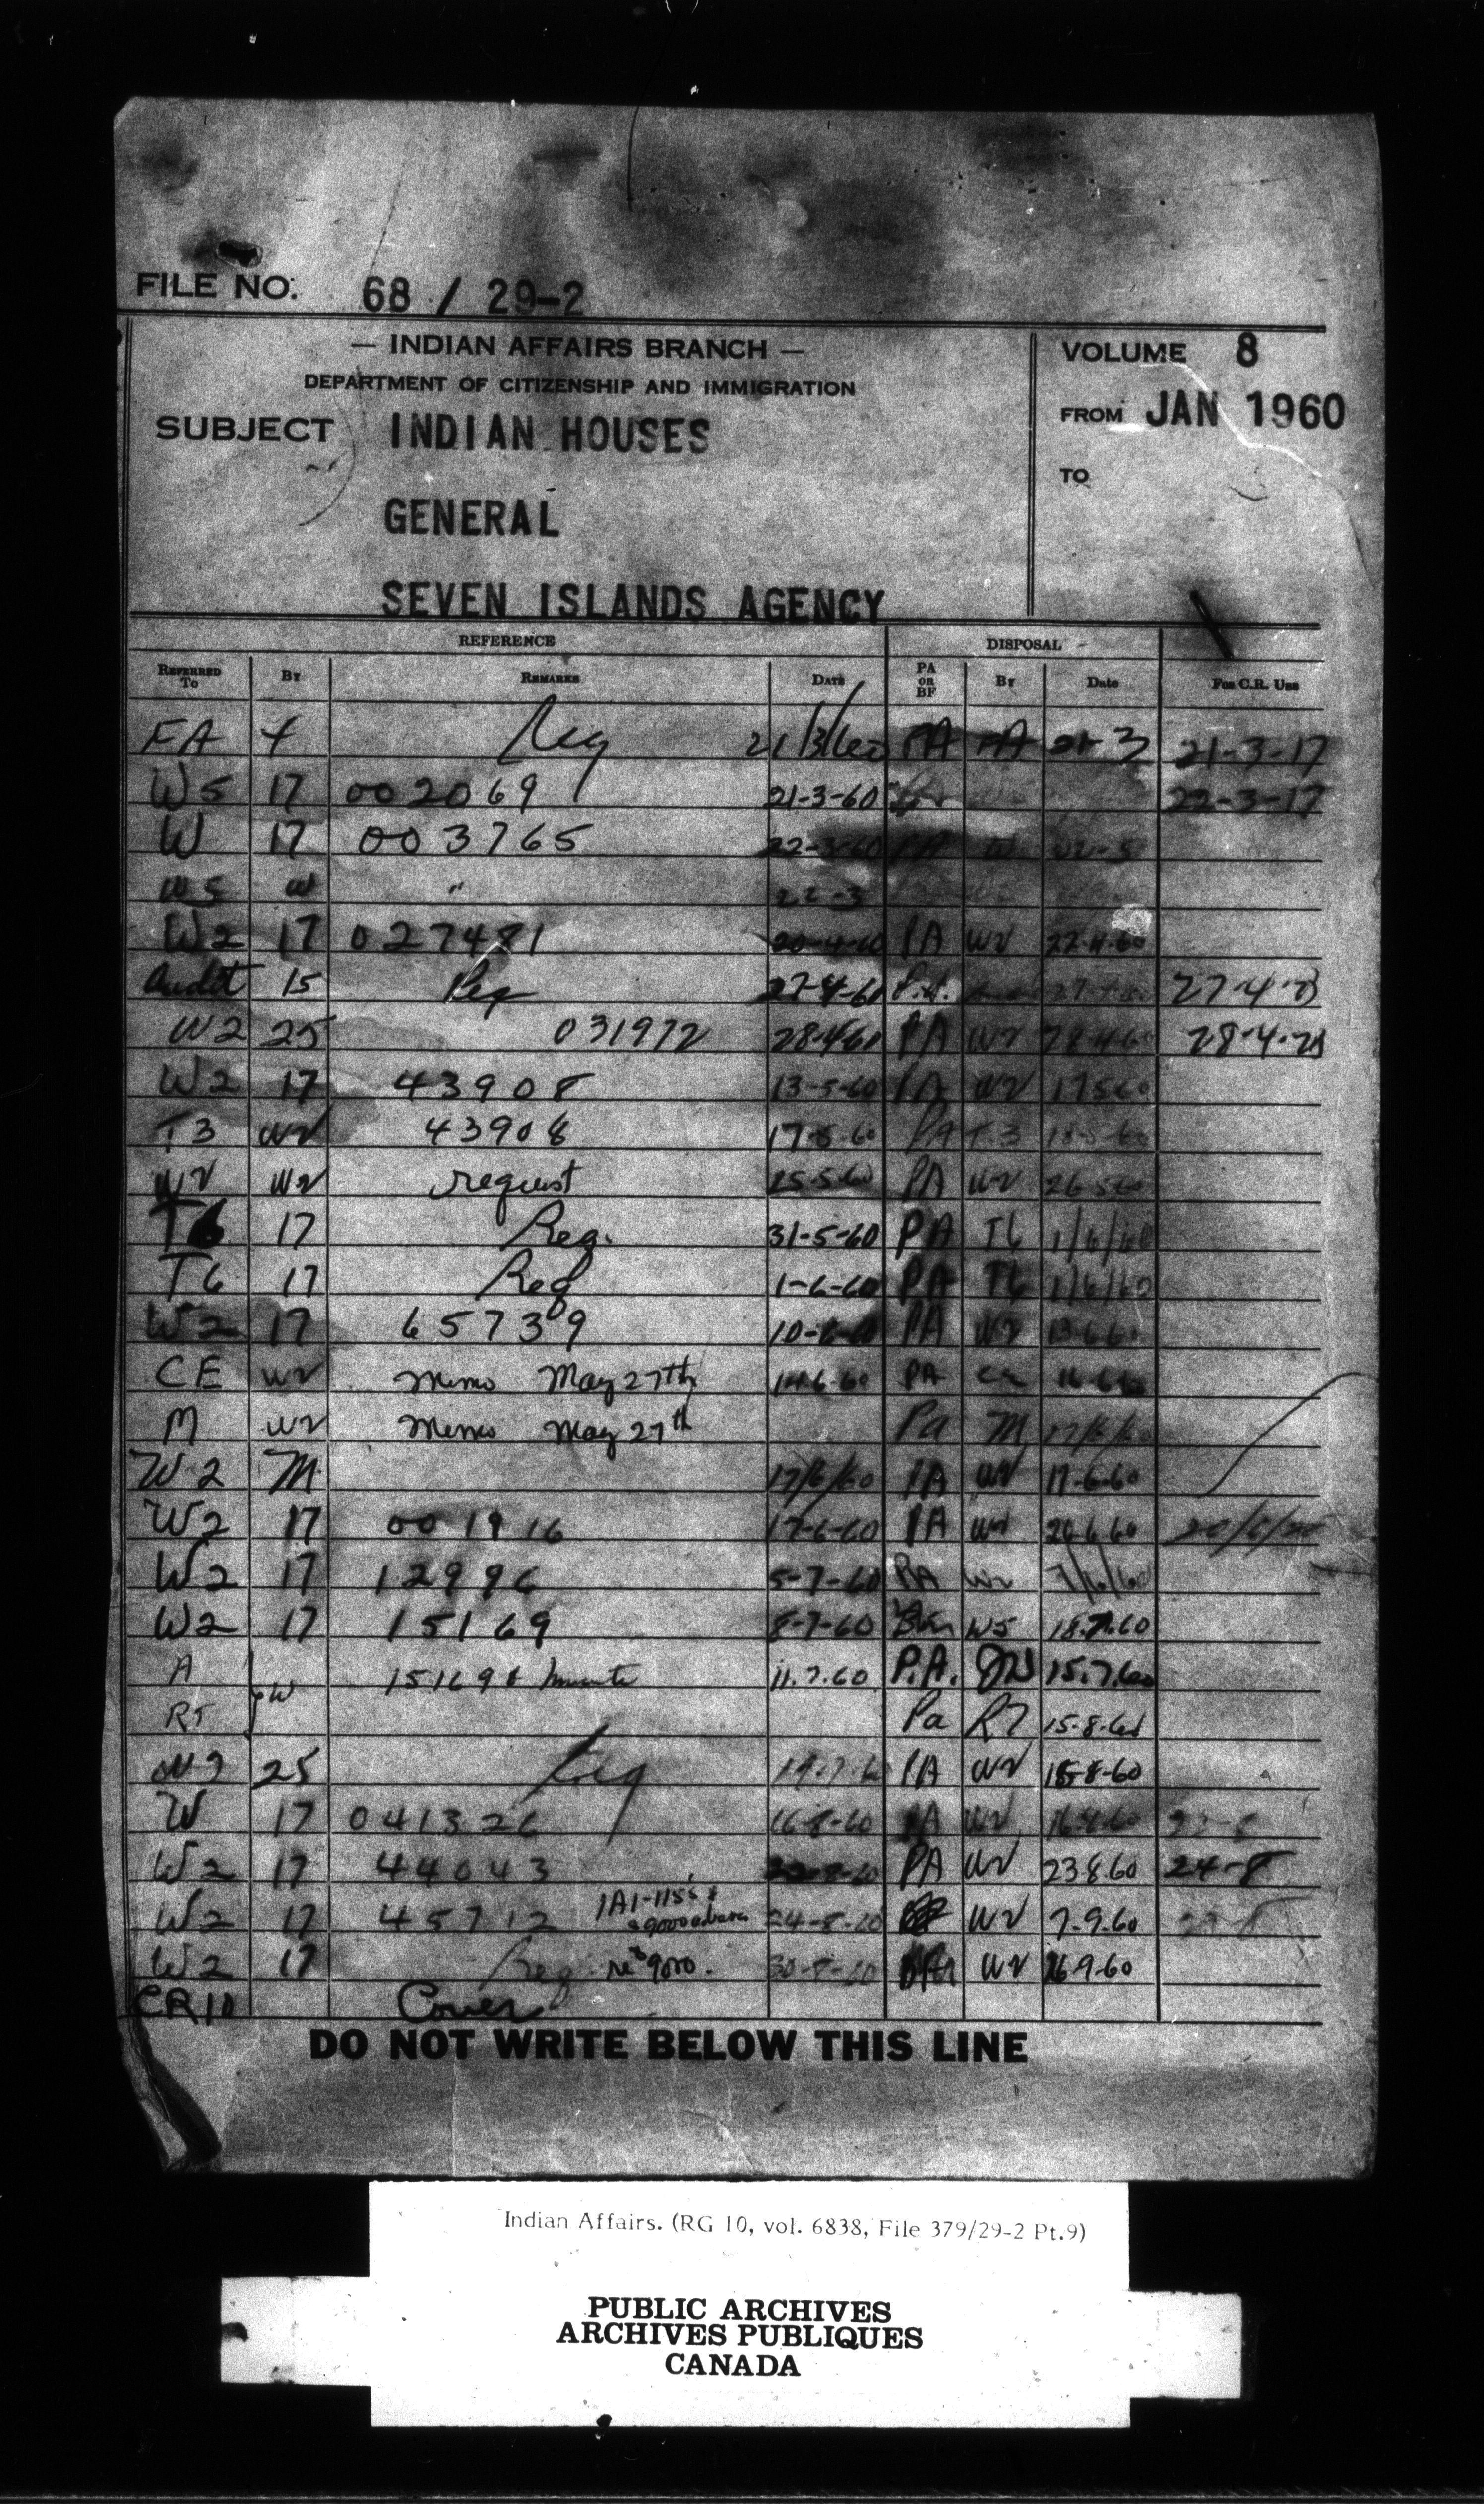 FILE NO. 68 / 29-2
— INDIAN AFFAIRS BRANCH —
DEPARTMENT OF CITIZENSHIP AND IMMIGRATION
VOLUME 8
FROM JAN 1960
TO
SUBJECT INDIAN HOUSES
GENERAL
SEVEN ISLANDS AGENCY
REFERENCE DISPOSAL
REFERRED TO BY REMARKS DATE PA OR BF BY DATE FOR C.R. USE
FA 4 Req 21/3/60 PA FA 21-3 21-3-17
W5 17 002069 21-3-60 22-3-17
W 17 003765 22-3-60 PA W
W5 W " 22-3
W2 17 027481 20-4-60 PA W2 22-4-60
Audit 15 Req 27-4-60 P.A. 27-4-
W2 25 031972 28-4-60 PA W2 28-4-60
W2 17 43908 13-5-60 PA W2 17560
T3 W2 43908 17-5-60 PA T3
W2 W2 request 25.5.60 PA W2 26560
T6 17 Req. 31-5-60 PA T6 1/6/60
T6 17 Req 1-6-60 PA T6 1/6/60
W2 17 65739 10-6-60 PA W2 13660
CE W2 Memo May 27th 14-6-60 PA CE 16-6-60
M W2 Memo May 27th Pa M 17/6/60
W2 M 17/6/60 PA W2 17-6-60
W2 17 001916 17-6-60 PA W2 20/6/
W2 17 12996 5-7-60 PA W2
W2 17 15169 8-7-60 W5 18.7.60
A JW 15169 & minute 11.7.60 P.A. JW 15.7.60
RT Pa RT 15-8-60
W2 25 Req PA W2 15-8-60
W 17 041326 16-8-60 PA W2 16-8-60
W2 17 44643 22-8-60 PA W2 23.8.60 24-8
W2 17 45712 1A1-1155 & 24-8-60 W2 7.9.60
W2 17 Req 30-8-60 W2 16.9.60
CR10 Cover
DO NOT WRITE BELOW THIS LINE
Indian Affairs. (RG 10, vol. 6838, File 379/29-2 Pt.9)
PUBLIC ARCHIVES
ARCHIVES PUBLIQUES
CANADA